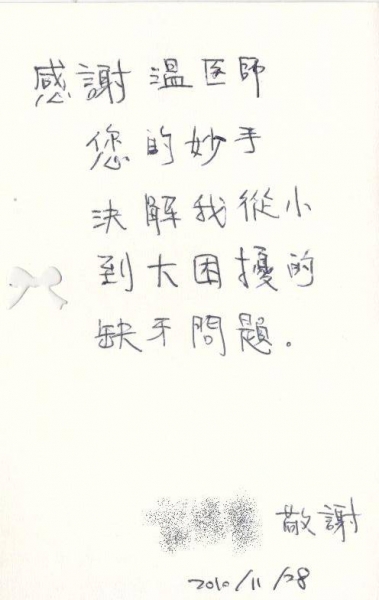 感謝溫医師
您的妙手
決解我從小
到大困擾的
缺牙問題。
敬謝
2010/11/28